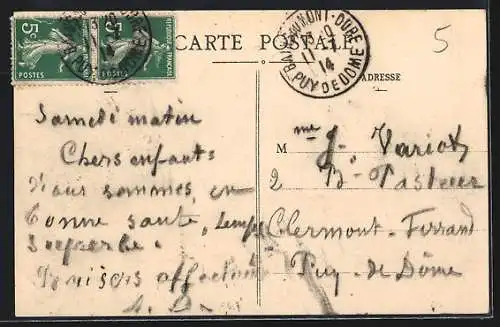 5c
POSTES
POSTES
CARTE POSTALE
BAINS-DU-MONT-DORE
13 30
11 -7
14
PUY DE DOME
5
ADRESSE
Samedi matin
Chers enfants
Nous sommes en
bonne santé, temps
superbe.
M me J. Variot
2 Bd Pasteur
Clermont-Ferrand
Puy-de-Dôme